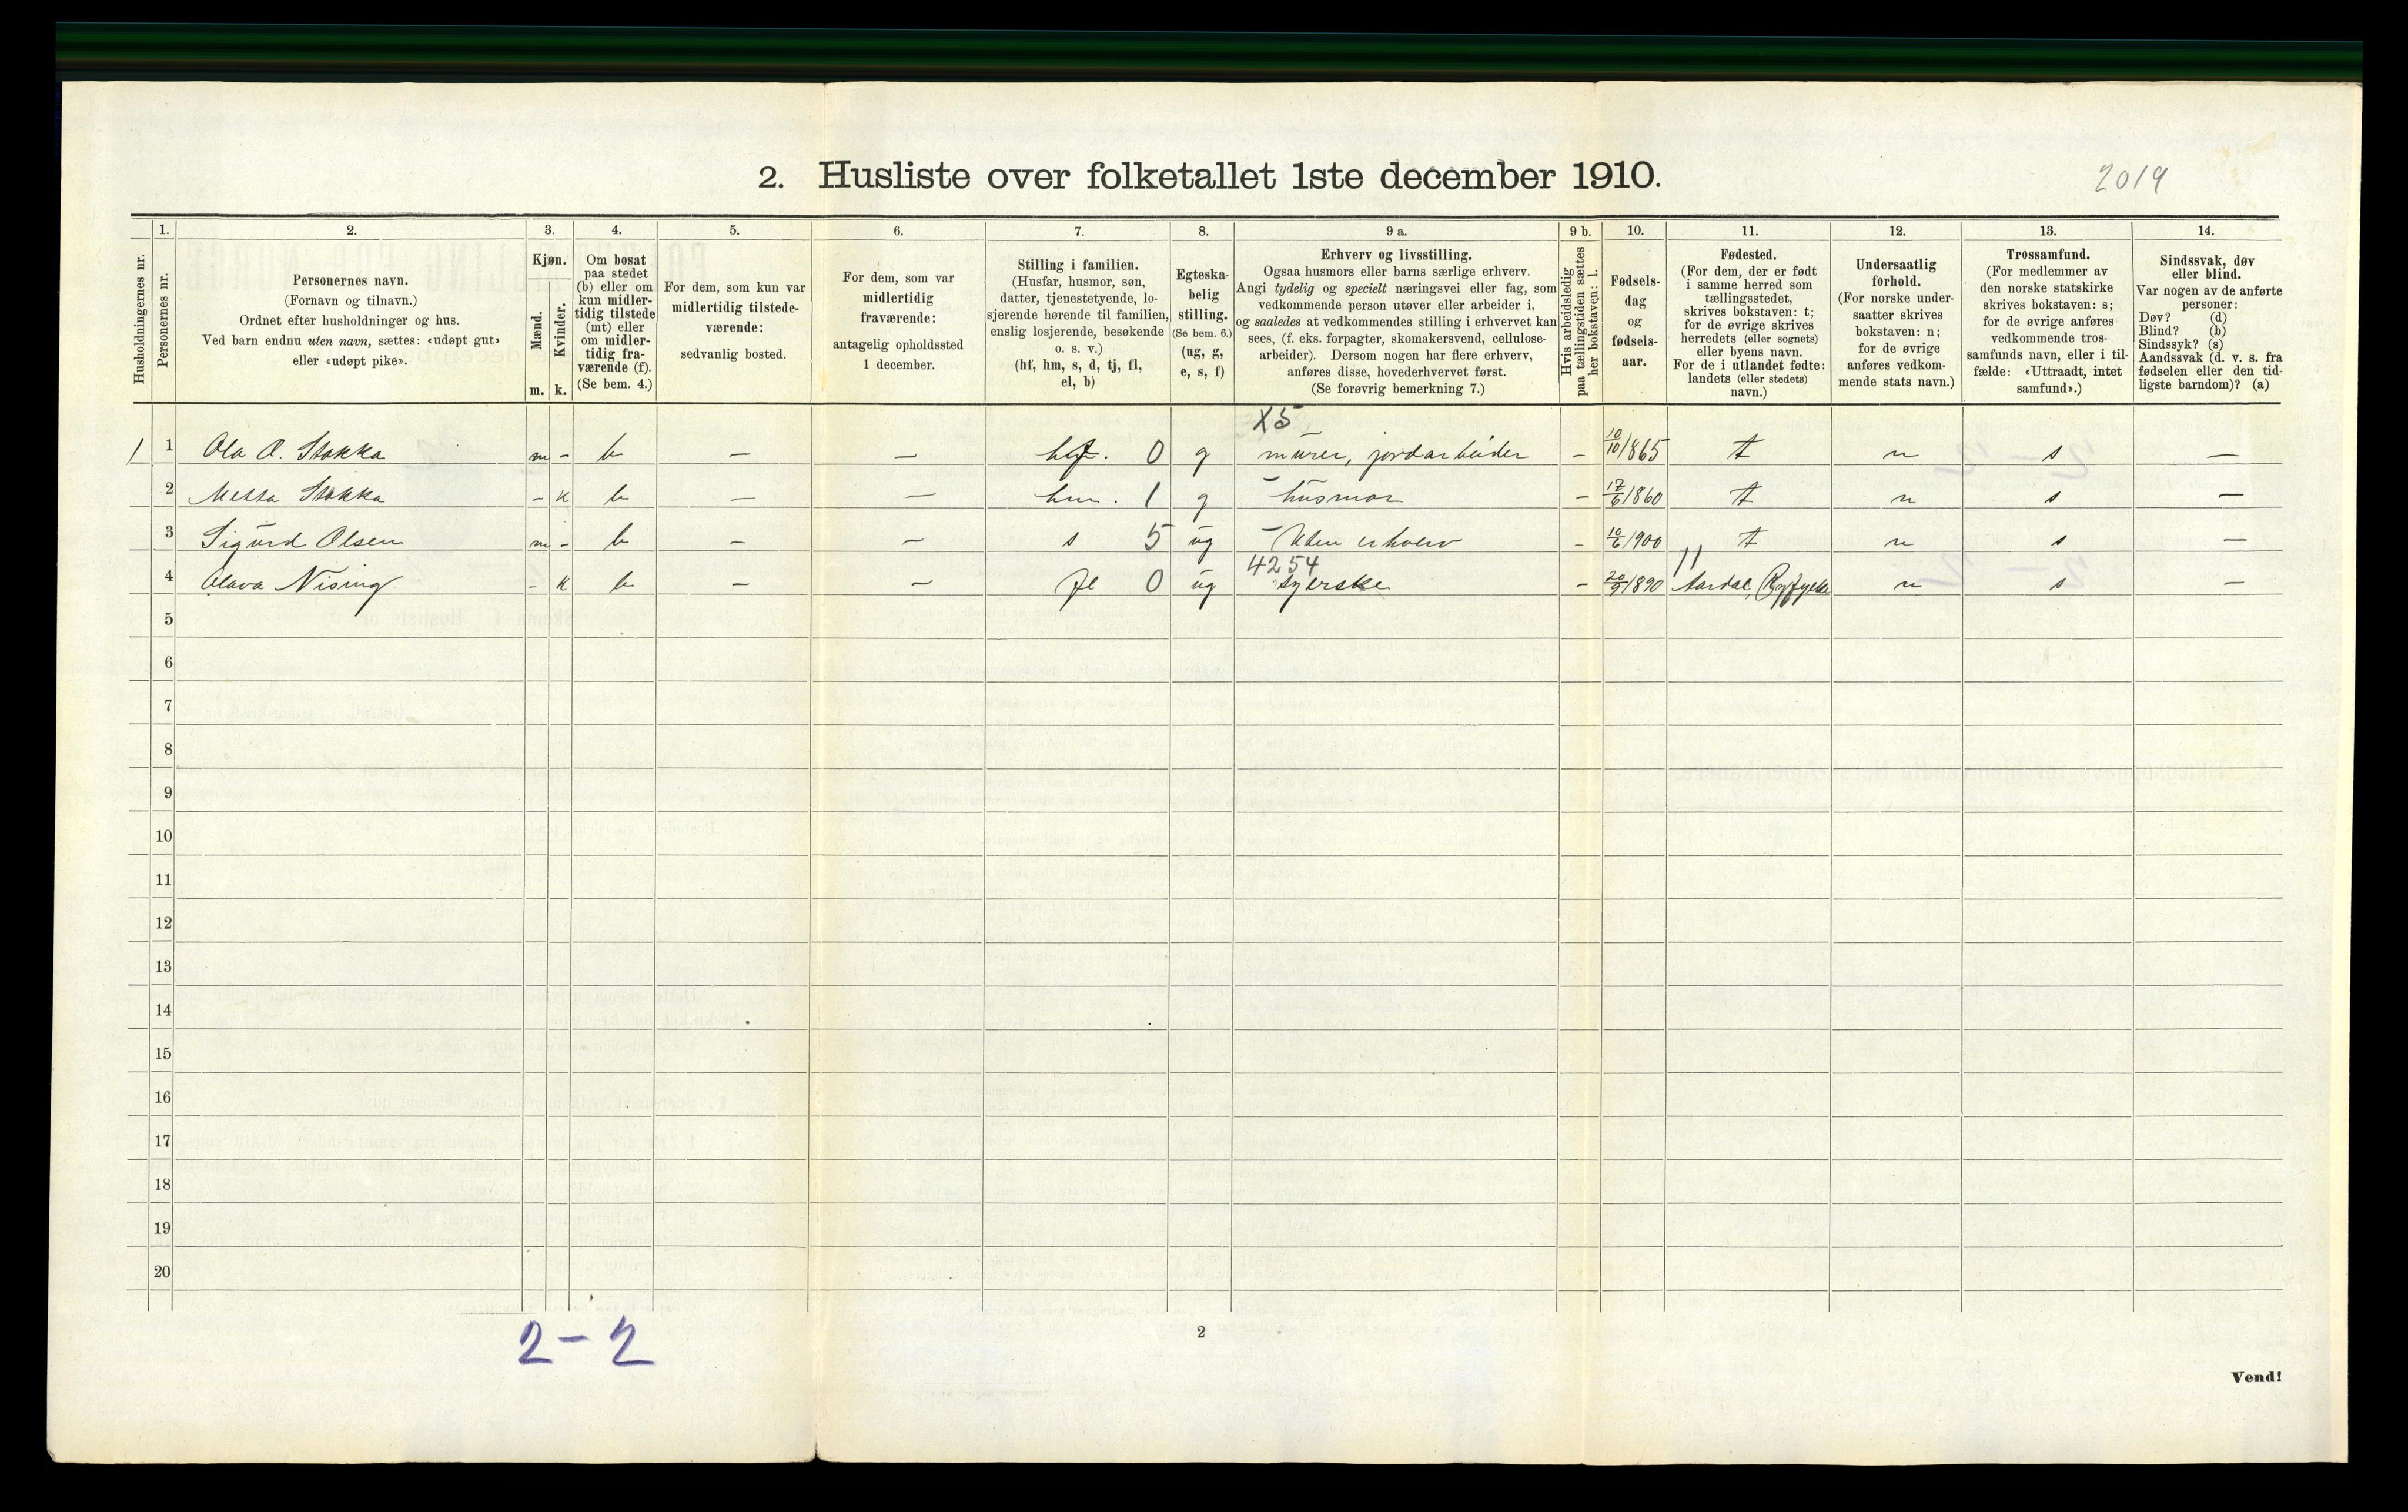 2. Husliste over folketallet 1ste december 1910.
2019
Husholdningernes nr.
1.
Personernes nr.
2.
Personernes navn.
(Fornavn og tilnavn.)
Ordnet efter husholdninger og hus.
Ved barn endnu uten navn, sættes: «udøpt gut»
eller «udøpt pike».
3.
Kjøn.
Mænd.
Kvinder.
m. k.
4.
Om bosat
paa stedet
(b) eller om
kun midler-
tidig tilstede
(mt) eller
om midler-
tidig fra-
værende (f).
(Se bem. 4.)
5.
For dem, som kun var
midlertidig tilstede-
værende:
sedvanlig bosted.
6.
For dem, som var
midlertidig
fraværende:
antagelig opholdssted
1 december.
7.
Stilling i familien.
(Husfar, husmor, søn,
datter, tjenestetyende, lo-
sjerende hørende til familien,
enslig losjerende, besøkende
o. s. v.)
(hf, hm, s, d, tj, fl,
el, b)
8.
Egteska-
belig
stilling.
(Se bem. 6.)
(ug, g,
e, s, f)
9 a.
Erhverv og livsstilling.
Ogsaa husmors eller barns særlige erhverv.
Angi tydelig og specielt næringsvei eller fag, som
vedkommende person utøver eller arbeider i,
og saaledes at vedkommendes stilling i erhvervet kan
sees, (f. eks. forpagter, skomakersvend, cellulose-
arbeider). Dersom nogen har flere erhverv,
anføres disse, hovederhvervet først.
(Se forøvrig bemerkning 7.)
9 b.
Hvis arbeidsledig
paa tællingstiden sættes
her bokstaven: l.
10.
Fødsels-
dag
og
fødsels-
aar.
11.
Fødested.
(For dem, der er født
i samme herred som
tællingsstedet,
skrives bokstaven: t;
for de øvrige skrives
herredets (eller sognets)
eller byens navn.
For de i utlandet fødte:
landets (eller stedets)
navn.)
12.
Undersaatlig
forhold.
(For norske under-
saatter skrives
bokstaven: n;
for de øvrige
anføres vedkom-
mende stats navn.)
13.
Trossamfund.
(For medlemmer av
den norske statskirke
skrives bokstaven: s;
for de øvrige anføres
vedkommende tros-
samfunds navn, eller i til-
fælde: «Uttraadt, intet
samfund».)
14.
Sindssvak, døv
eller blind.
Var nogen av de anførte
personer:
Døv? (d)
Blind? (b)
Sindssyk? (s)
Aandssvak (d. v. s. fra
fødselen eller den tid-
ligste barndom)? (a)
X5
1 1 Ola O. Stokka m - b — — hf. 0 g murer, jordarbeider - 10/10/865 t n s —
2 Metta Stokka - k b — — hm. 1 g - husmor - 17/6/860 t n s —
3 Sigurd Olsen m - b — — s 5 ug - Uten erhverv - 10/6/900 t n s —
4254 11
4 Olava Nising - k b — — fl 0 ug syerske - 20/9/890 Aardal, Ryfylke n s —
5
6
7
8
9
10
11
12
13
14
15
16
17
18
19
20
2 - 2
2
Vend!